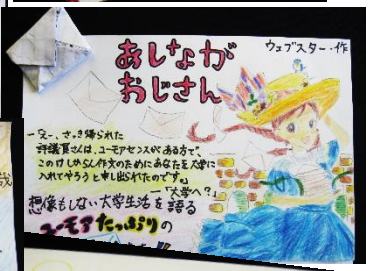 あしなが
おじさん
ウェブスター・作
評議員さんは、ユーモアセンスがある方で、
このけしからん作文のためにあなたを大学に
入れてやろうと申し出られたのです。」
―「大学へ？」
想像もしない大学生活を語る
ユーモアたっぷりの